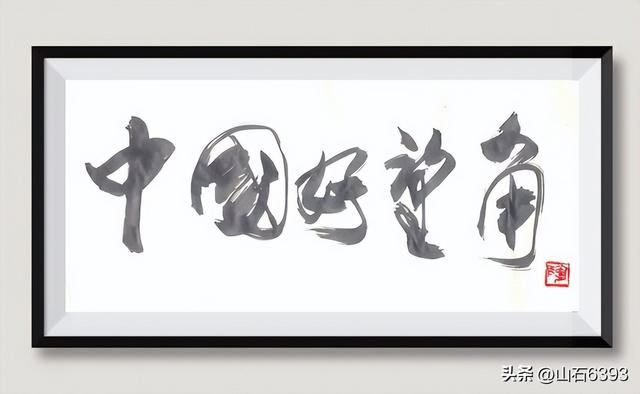 中國好望角
头条 @山石6393